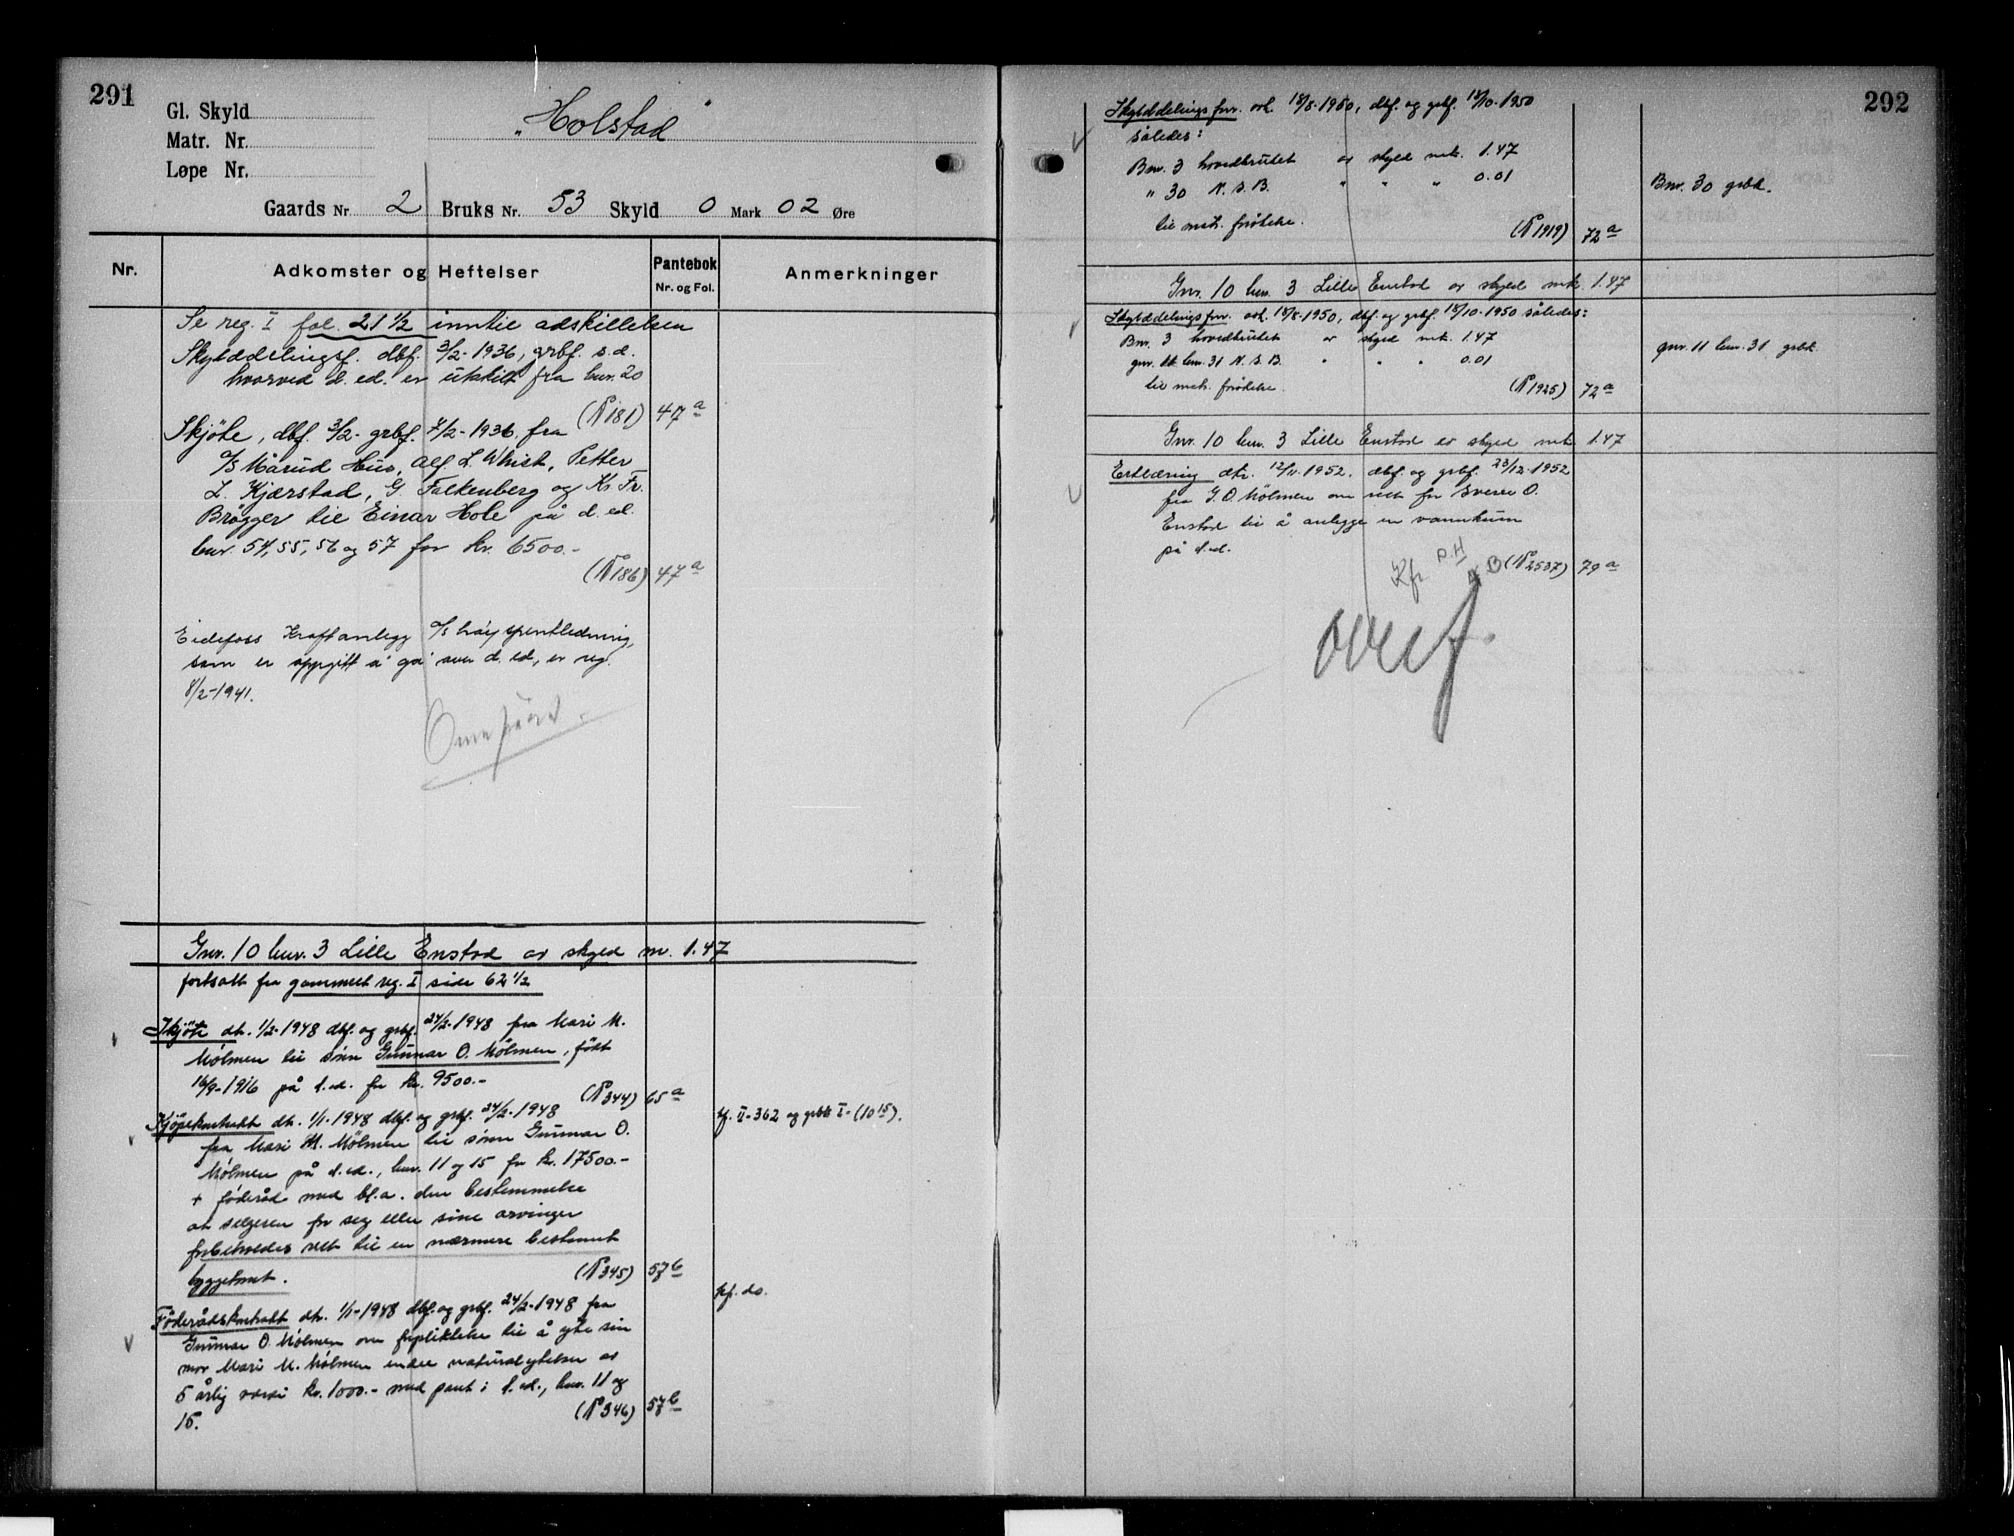 291
Gl. Skyld
"Holstad"
Matr. Nr.
Løpe Nr.
Gaards Nr. 2 Bruks Nr. 53 Skyld 0 Mark 02 Øre
Nr. Adkomster og Heftelser Pantebok Nr. og Fol. Anmerkninger
Se reg. I fol. 21 1/2 inntil adskillelsen
Skylddelingsf. dbf. 3/2-1936, grbf. s.d.
hvorved d. ed. er utskilt fra bnr. 20
(№ 181) 47 a
Skjöte, dbf. 3/2- grbf. 4/2-1936. fra
A/S Mårud Hus, Alf L. Whist, Petter
L. Kjærstad, G. Falkenberg og Kr. Fr.
Brøgger til Einar Hole på d. ed.
bnr. 54, 55, 56 og 57 for kr. 6500.-
(№ 186) 47 a
Eidefoss Kraftanlegg A/S høyspentledning,
som er oppgitt å gå over d. ed., er reg.
8/2-1941.
Omskrevet.
Gnr. 10 bnr. 3 Lille Enstad av skyld m. 1.47
fortsatt fra gammelt reg. I side 62 1/2
Skjöte dt. 1/2-1948 dbf. og grbf. 24/2-1948 fra Mari M.
Mölmen til sönn Gunnar O. Mölmen, født
16/9-1916 på d.ed. for kr. 9500.-
(№ 344) 65 a
Kjöpekontrakt dt. 1/1-1948 dbf. og grbf. 24/2-1948
kf. II-362 og grbk I-(10 15).
fra Mari M. Mölmen til sönn Gunnar O.
Mölmen på d.ed., bnr. 11 og 15 for kr. 17500.-
+ föderåd med bl.a. den bestemmelse
at selgeren for seg eller sine arvinger
forbeholdes rett til en nærmere bestemt
byggetomt.
(№ 345) 57 b
Föderådskontrakt dt. 1/1-1948 dbf. og grbf. 24/2-1948 fra
kf. do.
Gunnar O. Mölmen om forpliktelse til å yte sin
mor Mari M. Mölmen endel naturalytelser av
5 årlig verdi kr. 1000.- med pant i d.ed., bnr. 11 og
15.
(№ 346) 57 b
292
Skylddelingsforr. avh. 18/8-1950, dbf. og grbf. 18/10-1950
således:
Bnr. 3 hovedbruket av skyld mrk. 1.47
" 30 N.S.B. " " " 0.01
Bnr. 30 grbk.
til matr. forökelse.
(№ 1919) 72 a
Gnr. 10 bnr. 3 Lille Enstad av skyld mrk. 1.47
Skylddelingsforr. avh. 18/8-1950, dbf. og grbf. 18/10-1950 således:
Bnr. 3 hovedbruket av skyld mrk. 1.47
gnr. 11 bnr. 31 N.S.B. " " 0.01
gnr. 11 bnr. 31 grbk.
til matr. forökelse.
(№ 1925) 72 a
Gnr. 10 bnr. 3 Lille Enstad av skyld mrk. 1.47
Erklæring dt. 12/11-1952. dbf. og grbf. 23/12-1952
fra G.O. Mölmen om rett for Sverre O.
Enstad til å anlegge en vannkum
på d.ed.
(№ 2537) 79 a
Kfr P.H
overf.